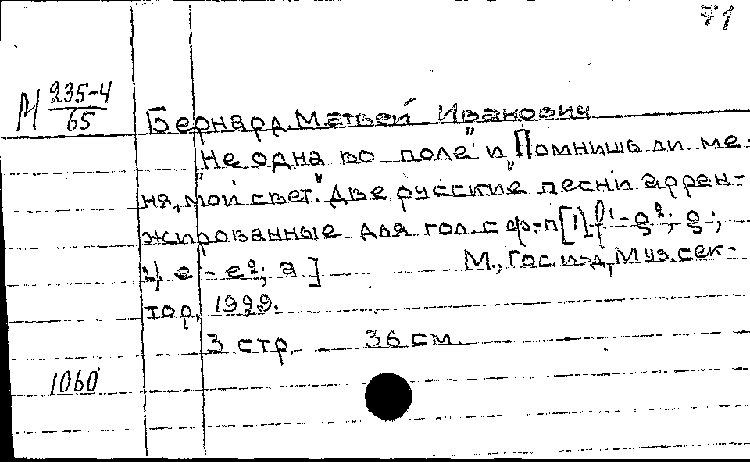 71
М 235-4/65
Бернард, Матвей Иванович
"Не одна во поле" и "Помнишь ли ме-
ня, мой свет." Две русские песни арран-
жированные для гол. с ф-п [1) f¹-g²; g;
2) e¹-e²; a.] М., Гос. изд, Муз. сек-
тор, 1929.
3 стр. 36 см.
1060